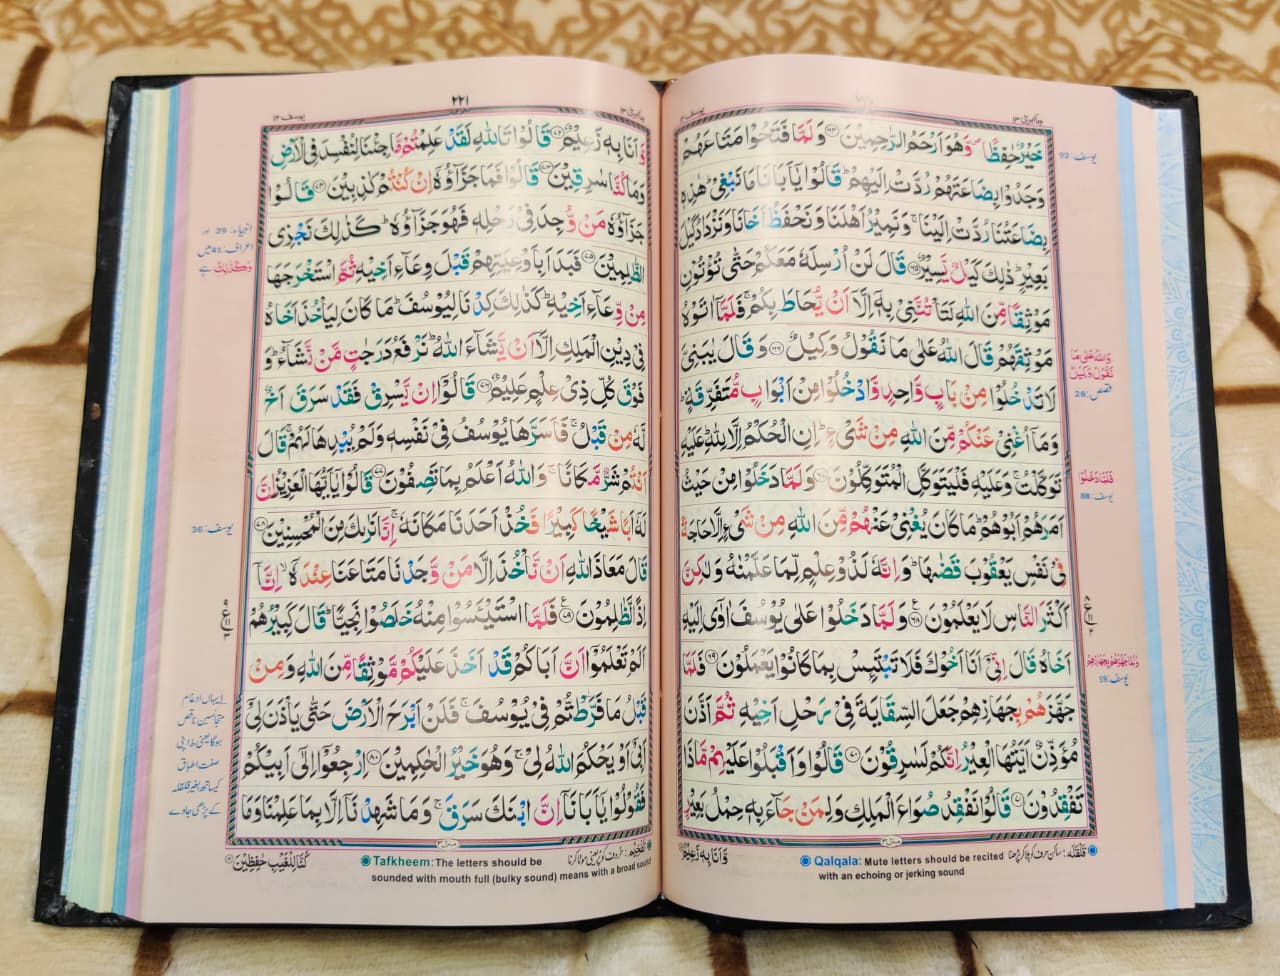 یوسف ۱۲
وما ابرئ ۱۳
خَیْرٌ حٰفِظًا ۪ وَّهُوَ اَرْحَمُ الرّٰحِمِیْنَ ﴿۶۴﴾ وَلَمَّا فَتَحُوْا مَتَاعَهُمْ
وَجَدُوْا بِضَاعَتَهُمْ رُدَّتْ اِلَیْهِمْ ؕ قَالُوْا یٰۤاَبَانَا مَا نَبْغِیْ ؕ هٰذِهٖ
بِضَاعَتُنَا رُدَّتْ اِلَیْنَا ۚ وَنَمِیْرُ اَهْلَنَا وَنَحْفَظُ اَخَانَا وَنَزْدَادُ كَیْلَ
بَعِیْرٍ ؕ ذٰلِكَ كَیْلٌ یَّسِیْرٌ ﴿۶۵﴾ قَالَ لَنْ اُرْسِلَهٗ مَعَكُمْ حَتّٰی تُؤْتُوْنِ
مَوْثِقًا مِّنَ اللّٰهِ لَتَاْتُنَّنِیْ بِهٖۤ اِلَّاۤ اَنْ یُّحَاطَ بِكُمْ ۚ فَلَمَّاۤ اٰتَوْهُ
مَوْثِقَهُمْ قَالَ اللّٰهُ عَلٰی مَا نَقُوْلُ وَكِیْلٌ ﴿۶۶﴾ وَقَالَ یٰبَنِیَّ
لَا تَدْخُلُوْا مِنْۢ بَابٍ وَّاحِدٍ وَّادْخُلُوْا مِنْ اَبْوَابٍ مُّتَفَرِّقَةٍ ؕ
وَمَاۤ اُغْنِیْ عَنْكُمْ مِّنَ اللّٰهِ مِنْ شَیْءٍ ؕ اِنِ الْحُكْمُ اِلَّا لِلّٰهِ ؕ عَلَیْهِ
تَوَكَّلْتُ ۚ وَعَلَیْهِ فَلْیَتَوَكَّلِ الْمُتَوَكِّلُوْنَ ﴿۶۷﴾ وَلَمَّا دَخَلُوْا مِنْ حَیْثُ
اَمَرَهُمْ اَبُوْهُمْ ؕ مَا كَانَ یُغْنِیْ عَنْهُمْ مِّنَ اللّٰهِ مِنْ شَیْءٍ اِلَّا حَاجَةً
فِیْ نَفْسِ یَعْقُوْبَ قَضٰىهَا ؕ وَاِنَّهٗ لَذُوْ عِلْمٍ لِّمَا عَلَّمْنٰهُ وَلٰكِنَّ
اَكْثَرَ النَّاسِ لَا یَعْلَمُوْنَ ﴿۶۸﴾ وَلَمَّا دَخَلُوْا عَلٰی یُوْسُفَ اٰوٰۤی اِلَیْهِ
اَخَاهُ قَالَ اِنِّیْۤ اَنَا اَخُوْكَ فَلَا تَبْتَىِٕسْ بِمَا كَانُوْا یَعْمَلُوْنَ ﴿۶۹﴾ فَلَمَّا
جَهَّزَهُمْ بِجَهَازِهِمْ جَعَلَ السِّقَایَةَ فِیْ رَحْلِ اَخِیْهِ ثُمَّ اَذَّنَ
مُؤَذِّنٌ اَیَّتُهَا الْعِیْرُ اِنَّكُمْ لَسٰرِقُوْنَ ﴿۷۰﴾ قَالُوْا وَاَقْبَلُوْا عَلَیْهِمْ مَّاذَا
تَفْقِدُوْنَ ﴿۷۱﴾ قَالُوْا نَفْقِدُ صُوَاعَ الْمَلِكِ وَلِمَنْ جَآءَ بِهٖ حِمْلُ بَعِیْرٍ
منزل ۳
وَّاَنَا بِهٖ زَعِیْمٌ
یوسف: 92
وَاللّٰهُ عَلٰی مَا
نَقُوْلُ وَكِیْلٌ
قصص: 28
فَلَمَّا دَخَلُوْا
یوسف: 88
وَلَمَّا جَهَّزَهُمْ بِجَهَازِهِمْ
یوسف: 59
قلقلہ: ساکن حرف کو ہلا کر پڑھنا
Qalqala: Mute letters should be recited
with an echoing or jerking sound
۲۲۱
یوسف ۱۲
وما ابرئ ۱۳
وَّاَنَا بِهٖ زَعِیْمٌ ﴿۷۲﴾ قَالُوْا تَاللّٰهِ لَقَدْ عَلِمْتُمْ مَّا جِئْنَا لِنُفْسِدَ فِی الْاَرْضِ
وَمَا كُنَّا سٰرِقِیْنَ ﴿۷۳﴾ قَالُوْا فَمَا جَزَآؤُهٗۤ اِنْ كُنْتُمْ كٰذِبِیْنَ ﴿۷۴﴾ قَالُوْا
جَزَآؤُهٗ مَنْ وُّجِدَ فِیْ رَحْلِهٖ فَهُوَ جَزَآؤُهٗ ؕ كَذٰلِكَ نَجْزِی
الظّٰلِمِیْنَ ﴿۷۵﴾ فَبَدَاَ بِاَوْعِیَتِهِمْ قَبْلَ وِعَآءِ اَخِیْهِ ثُمَّ اسْتَخْرَجَهَا
مِنْ وِّعَآءِ اَخِیْهِ ؕ كَذٰلِكَ كِدْنَا لِیُوْسُفَ ؕ مَا كَانَ لِیَاْخُذَ اَخَاهُ
فِیْ دِیْنِ الْمَلِكِ اِلَّاۤ اَنْ یَّشَآءَ اللّٰهُ ؕ نَرْفَعُ دَرَجٰتٍ مَّنْ نَّشَآءُ ؕ وَ
فَوْقَ كُلِّ ذِیْ عِلْمٍ عَلِیْمٌ ﴿۷۶﴾ قَالُوْۤا اِنْ یَّسْرِقْ فَقَدْ سَرَقَ اَخٌ
لَّهٗ مِنْ قَبْلُ ۚ فَاَسَرَّهَا یُوْسُفُ فِیْ نَفْسِهٖ وَلَمْ یُبْدِهَا لَهُمْ ۚ قَالَ
اَنْتُمْ شَرٌّ مَّكَانًا ۚ وَاللّٰهُ اَعْلَمُ بِمَا تَصِفُوْنَ ﴿۷۷﴾ قَالُوْا یٰۤاَیُّهَا الْعَزِیْزُ اِنَّ
لَهٗۤ اَبًا شَیْخًا كَبِیْرًا فَخُذْ اَحَدَنَا مَكَانَهٗ ۚ اِنَّا نَرٰىكَ مِنَ الْمُحْسِنِیْنَ ﴿۷۸﴾
قَالَ مَعَاذَ اللّٰهِ اَنْ نَّاْخُذَ اِلَّا مَنْ وَّجَدْنَا مَتَاعَنَا عِنْدَهٗۤ ۙ اِنَّاۤ
اِذًا لَّظٰلِمُوْنَ ﴿۷۹﴾ فَلَمَّا اسْتَیْـَٔسُوْا مِنْهُ خَلَصُوْا نَجِیًّا ؕ قَالَ كَبِیْرُهُمْ
اَلَمْ تَعْلَمُوْۤا اَنَّ اَبَاكُمْ قَدْ اَخَذَ عَلَیْكُمْ مَّوْثِقًا مِّنَ اللّٰهِ وَمِنْ
قَبْلُ مَا فَرَّطْتُّمْ فِیْ یُوْسُفَ ۚ فَلَنْ اَبْرَحَ الْاَرْضَ حَتّٰی یَاْذَنَ لِیْۤ
اَبِیْۤ اَوْ یَحْكُمَ اللّٰهُ لِیْ ۚ وَهُوَ خَیْرُ الْحٰكِمِیْنَ ﴿۸۰﴾ اِرْجِعُوْۤا اِلٰۤی اَبِیْكُمْ
فَقُوْلُوْا یٰۤاَبَانَاۤ اِنَّ ابْنَكَ سَرَقَ ۚ وَمَا شَهِدْنَاۤ اِلَّا بِمَا عَلِمْنَا وَمَا
منزل ۳
كُنَّا لِلْغَیْبِ حٰفِظِیْنَ
انبیاء: 29 اور
اعراف: 41 میں
وَكَذٰلِكَ ہے
یوسف: 36
تفخیم: حروف کو پُر یعنی موٹا کرنا
Tafkheem: The letters should be
sounded with mouth full (bulky sound) means with a broad sound